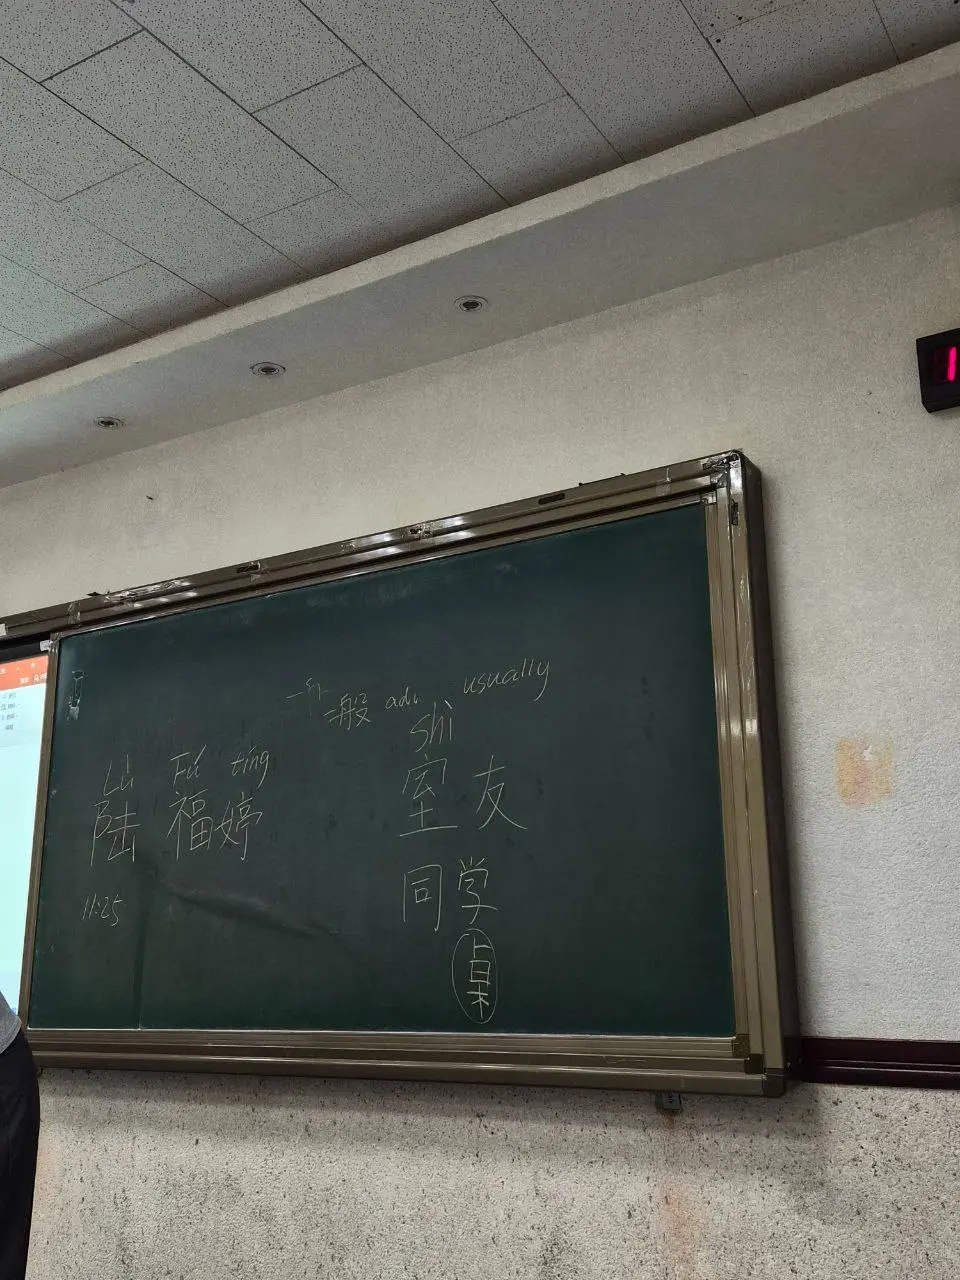 一般 adv. usually
Lù Fú tíng shì
陆 福婷 室友
11:25
同学
桌